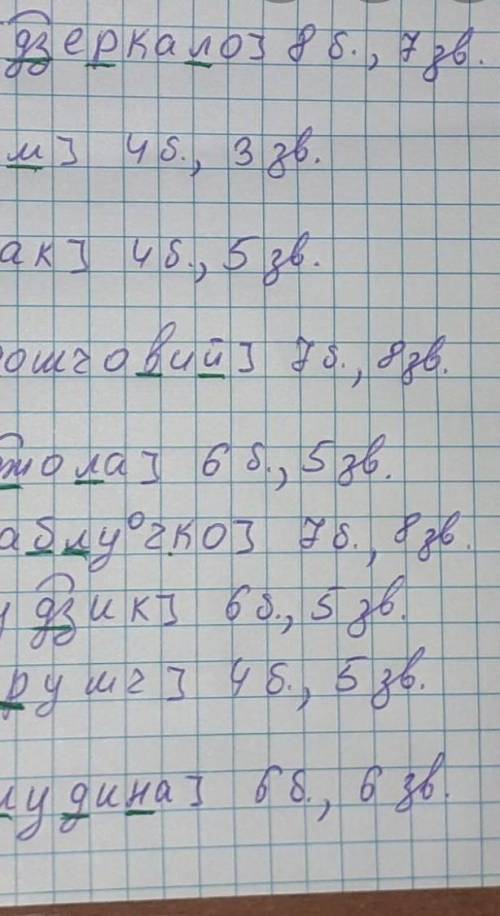 дзеркало] 8 б., 7 зв.
м] 4 б., 3 зв.
ак] 4 б., 5 зв.
ошчовий] 7 б., 8 зв.
жола] 6 б., 5 зв.
аблучко] 7 б., 8 зв.
дзик] 6 б., 5 зв.
рушч] 4 б., 5 зв.
лудина] 6 б., 6 зв.